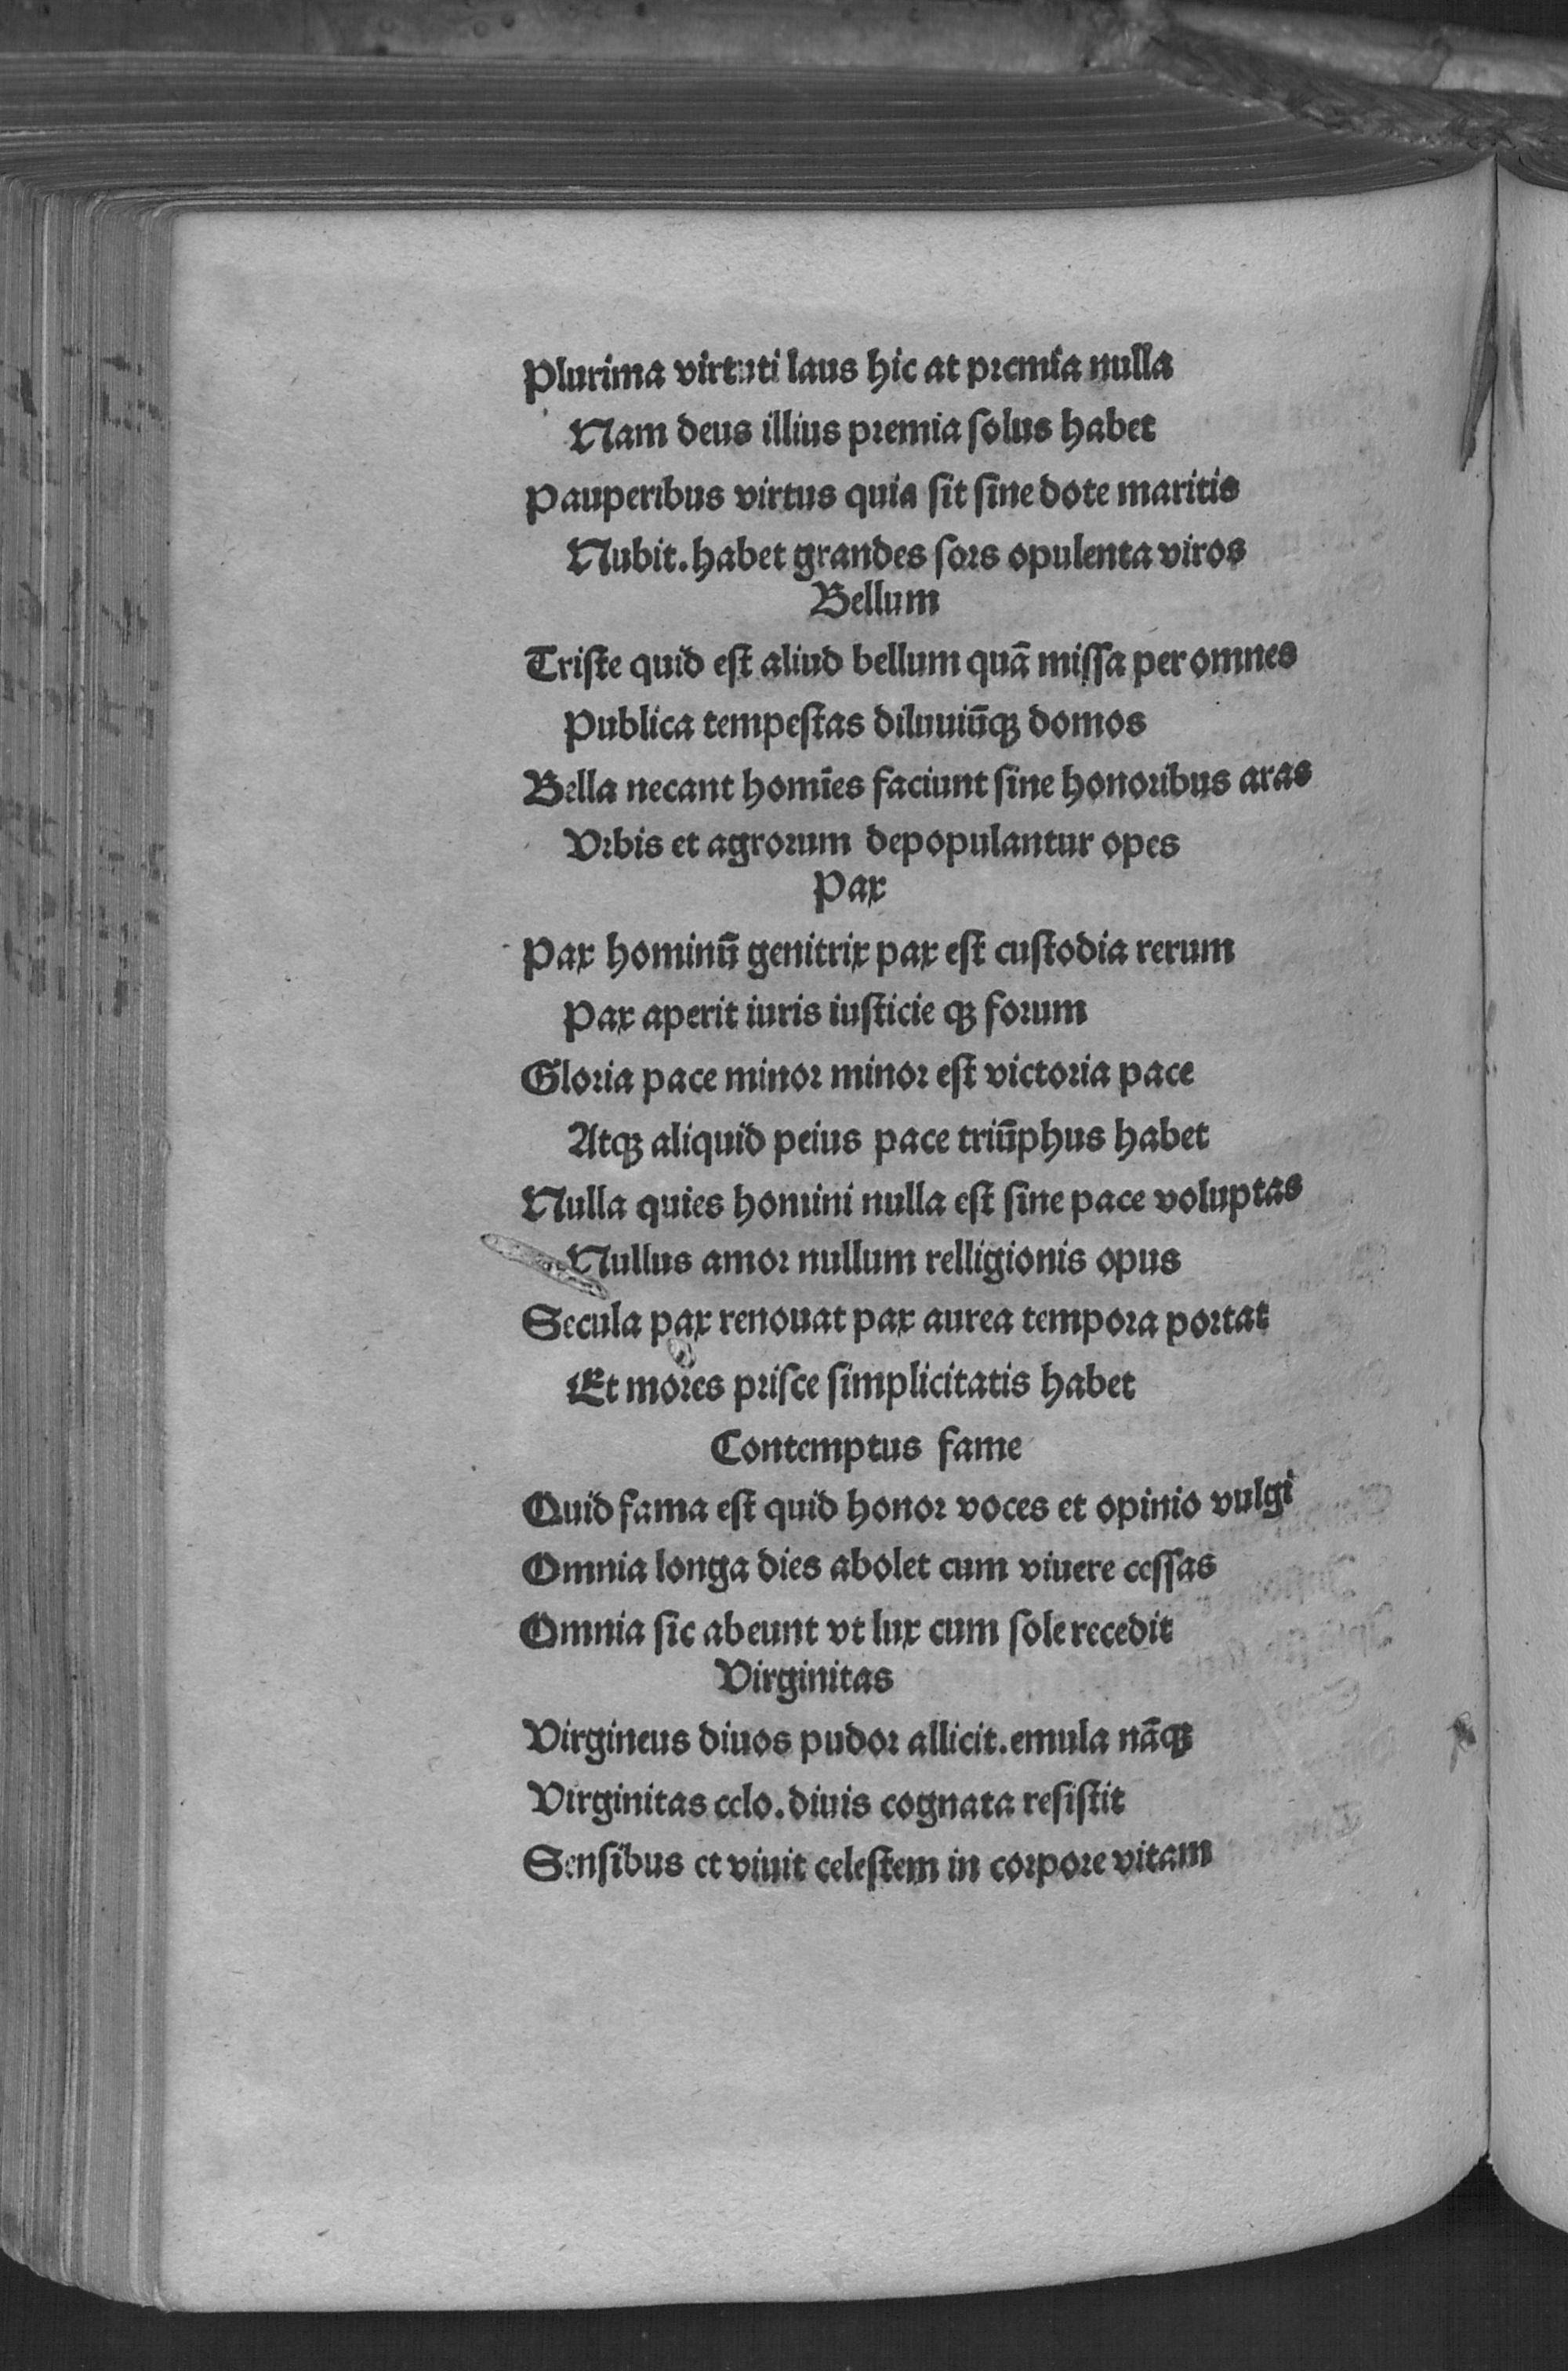 Plurima virtuti laus hic at premia nulla
Nam deus illius premia solus habet
Pauperibus virtus quia sit sine dote maritis
Nubit. habet grandes sors opulenta viros
Bellum
Triste quid est aliud bellum quā missa per omnes
Publica tempestas diluuiūqꝫ domos
Bella necant homīes faciunt sine honoribus aras
Vrbis et agrorum depopulantur opes
Pax
Pax hominū genitrix pax est custodia rerum
Pax aperit iuris iusticie qꝫ forum
Gloria pace minor minor est victoria pace
Atqꝫ aliquid peius pace triūphus habet
Nulla quies homini nulla est sine pace voluptas
Nullus amor nullum relligionis opus
Secula pax renouat pax aurea tempora portat
Et mores prisce simplicitatis habet
Contemptus fame
Quid fama est quid honor voces et opinio vulgi
Omnia longa dies abolet cum viuere cessas
Omnia sic abeunt vt lux cum sole recedit
Virginitas
Virgineus diuos pudor allicit. emula nāqꝫ
Virginitas celo. diuis cognata resistit
Sensibus et viuit celestem in corpore vitam